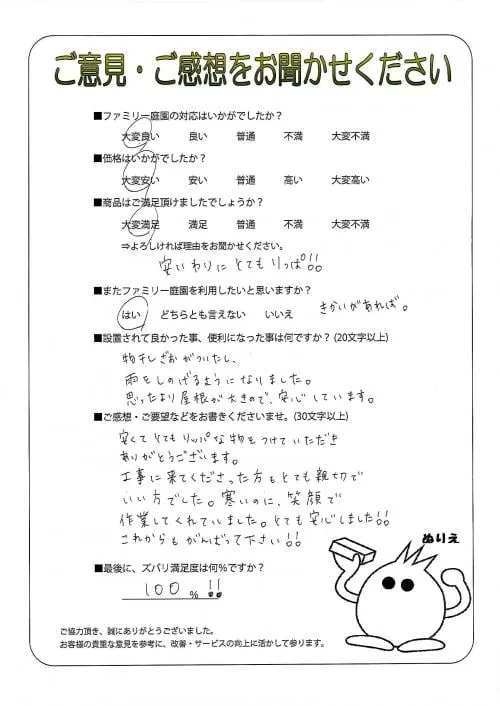 ご意見・ご感想をお聞かせください
■ファミリー庭園の対応はいかがでしたか？
大変良い　良い　普通　不満　大変不満
■価格はいかがでしたか？
大変安い　安い　普通　高い　大変高い
■商品はご満足頂けましたでしょうか？
大変満足　満足　普通　不満　大変不満
⇒よろしければ理由をお聞かせください。
安いわりにとてもりっぱ!!
■またファミリー庭園を利用したいと思いますか？
はい　どちらとも言えない　いいえ　きかいがあれば。
■設置されて良かった事、便利になった事は何ですか？(20文字以上)
物干しざおがついたし、
雨をしのげるようになりました。
思ったより屋根が大きので、安心しています。
■ご感想・ご要望などをお書きくださいませ。(30文字以上)
安くてとてもリッパな物をつけていただき
ありがとうございます。
工事に来てくださった方もとても親切で
いい方でした。寒いのに、笑顔で
作業してくれていました。とても安心しました!!
これからもがんばって下さい!!
ぬりえ
■最後に、ズバリ満足度は何％ですか？
100％!!
ご協力頂き、誠にありがとうございました。
お客様の貴重な意見を参考に、改善・サービスの向上に活かして参ります。